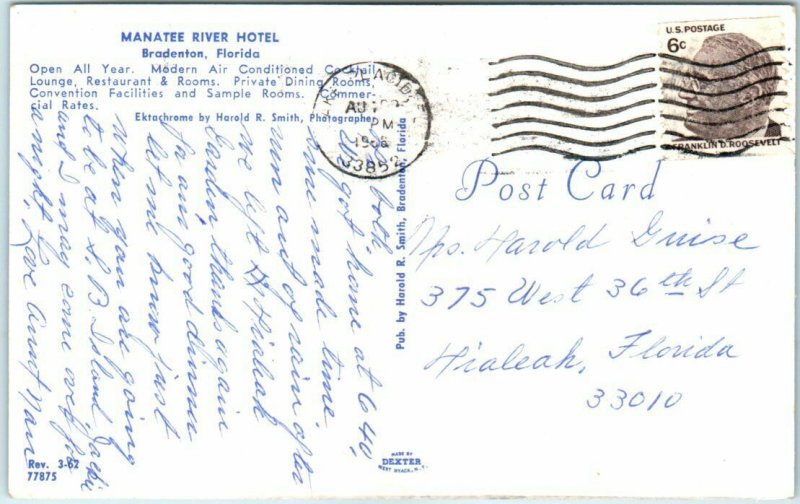 MANATEE RIVER HOTEL
Bradenton, Florida
Open All Year. Modern Air Conditioned Cocktail
Lounge, Restaurant & Rooms. Private Dining Rooms,
Convention Facilities and Sample Rooms. Commer-
cial Rates.
Ektachrome by Harold R. Smith, Photographer
both
We got home at 640,
time made time.
run out of rain after
we left Hialeah
Garden thanks again
for our good dinner
let me know just
when you are going
to be at L. B. Island, Jackie
and I may come over for
a night, Love Aunt Nan
Rev. 3-62
77875
Pub. by Harold R. Smith, Bradenton, Florida
MADE BY
DEXTER
WEST NYACK, N.Y.
PLACID
AU
PM
33852
U.S. POSTAGE
6c
FRANKLIN D. ROOSEVELT
Post Card
Mrs. Harold Guise
375 West 36th St
Hialeah, Florida
33010